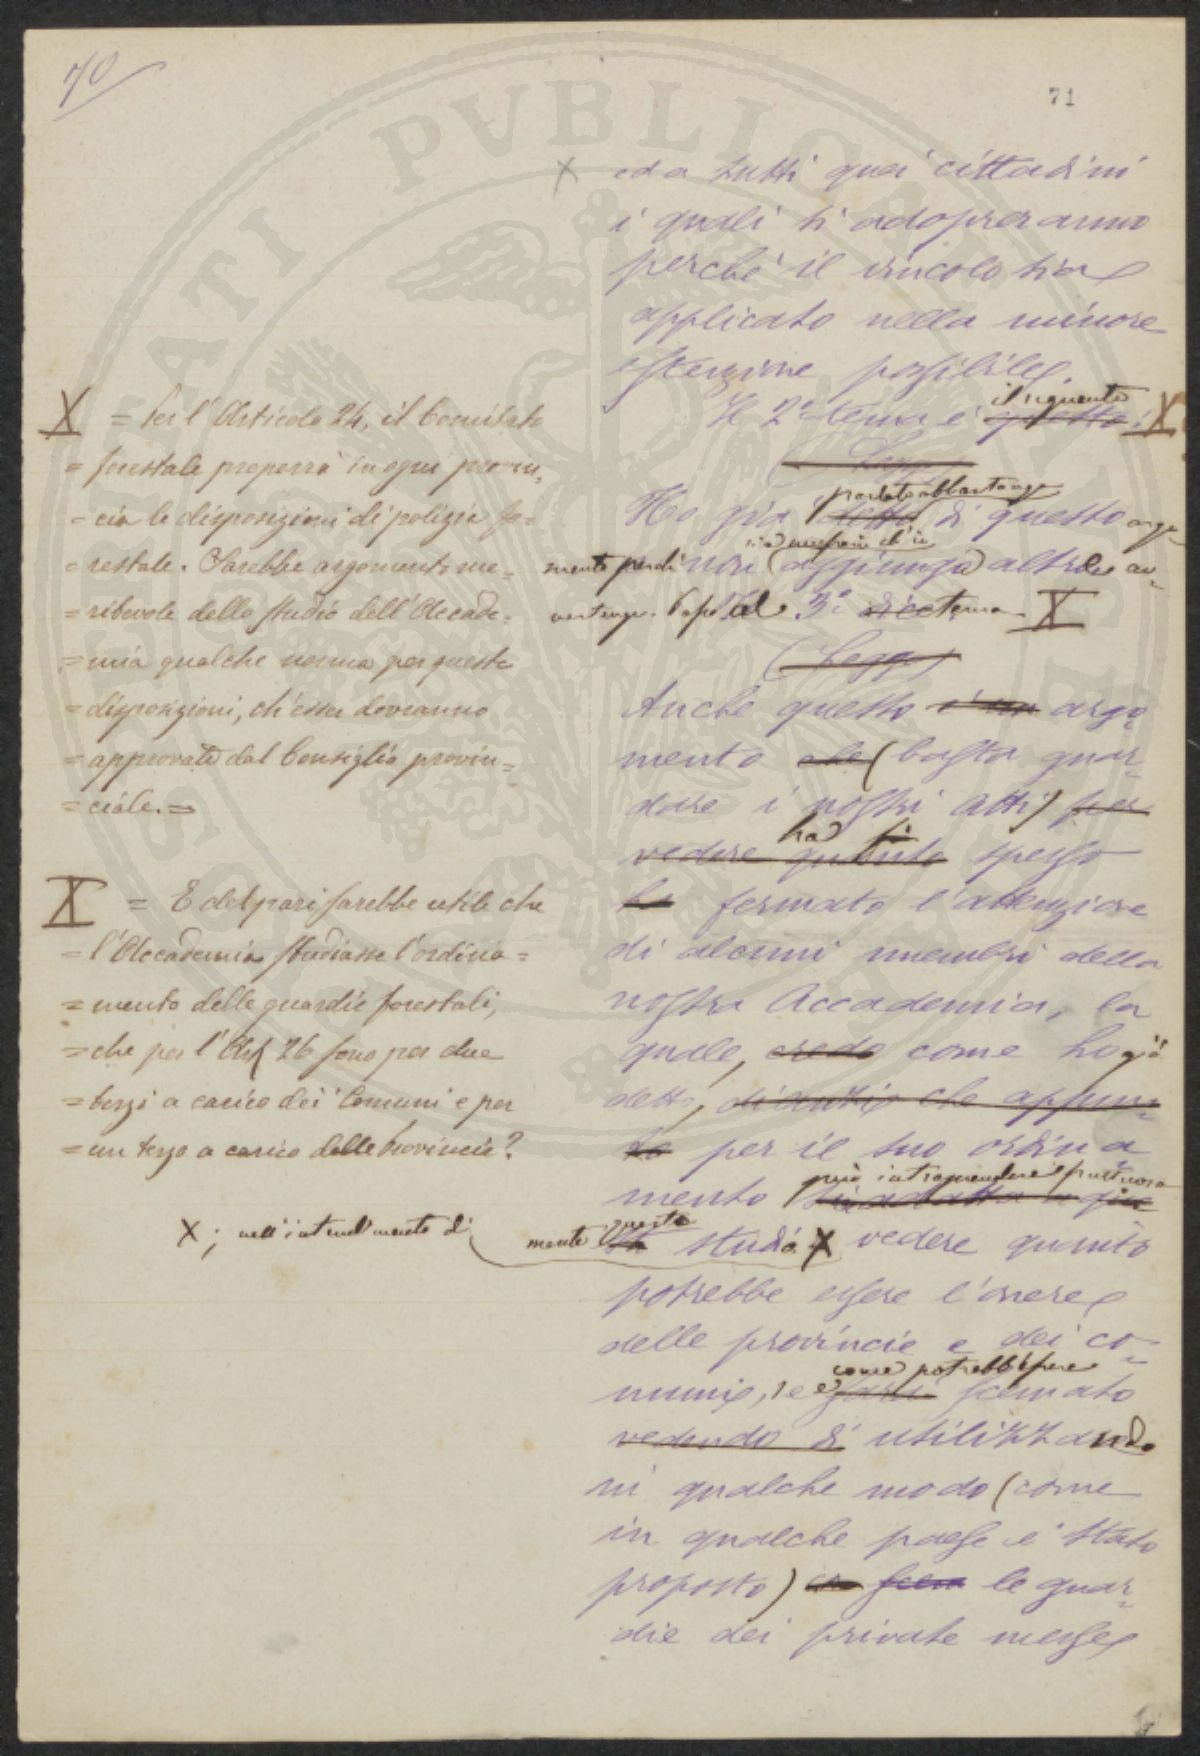 70
71
X ed a tutti quei cittadini
i quali si adopreranno
perchè il vincolo sia
applicato nella minore
estenzione possibile.
il seguente
Il 2° tema è questo: X
(Legge)
parlato abbastanza
Ho già detto di questo argo
mento perchè non (aggiunga) altre av-
vertenze. Dopo il 3° tema. X
(Legge)
Anche questo è un argo-
mento che (basta guar-
dare i nostri atti) per
ha
vedere quanto spesso
ha fermato l'attenzione
di alcuni membri della
nostra Accademia, la
quale, credo come ho già
detto, dianzi che appun-
to per il suo ordina-
può intraprendere fruttuosa
mento sia adatta a que
mente questo
sto studio X vedere quanto
potrebbe essere l'onere
delle provincie e dei co-
come potrebb'essere
muni, e e farsi scemato
vedendo di utilizzando
in qualche modo (come
in qualche paese è stato
proposto) le guar-
die dei privati messe
X = Per l'Articolo 24, il Comitato
= forestale proporrà in ogni provin-
= cia le disposizioni di polizia fo=
= restale. Sarebbe argomento me=
= ritevole dello studio dell'Accade=
= mia qualche norma per queste
= disposizioni, ch'esser dovranno
= approvate dal Consiglio provin-
= ciale. =
X = E del pari sarebbe utile che
= l'Accademia studiasse l'ordina=
= mento delle guardie forestali,
= che per l'Art 26 sono per due
= terzi a carico dei Comuni e per
= un terzo a carico delle Provincie?
X; nell'intendimento di
PUBLICA